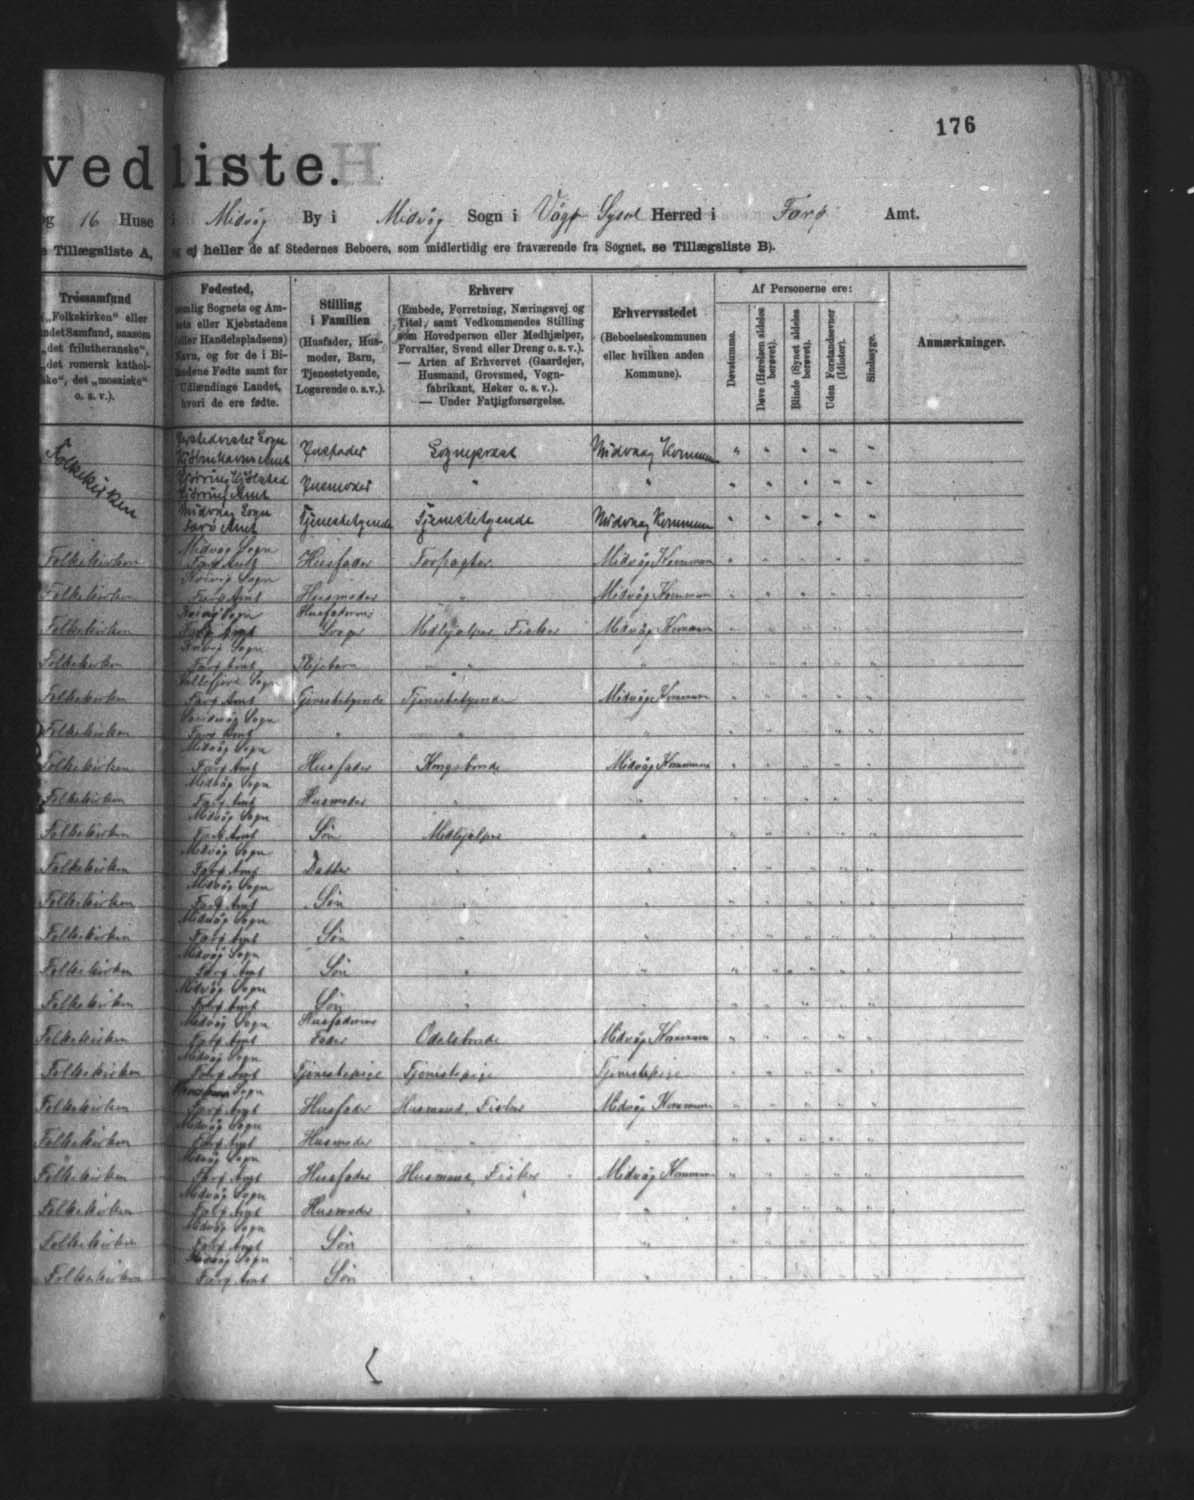 176
vedliste.
og 16 Huse i Midvåg By i Midvåg Sogn i Vågø Syssel Herred i Farø Amt.
e Tillægsliste A, og ej heller de af Stedernes Beboere, som midlertidig ere fraværende fra Sognet, se Tillægsliste B).
Trossamfund
(„Folkekirken“ eller
andet Samfund, saasom
„det frilutheranske“,
„det romersk kathol-
ske“, det „mosaiske“
o. s. v.).
Fødested,
nemlig Sognets og Am-
tets eller Kjøbstadens
(eller Handelspladsens)
Navn, og for de i Bi-
landene Fødte samt for
Udlændinge Landet,
hvori de ere fødte.
Stilling
i Familien
(Husfader, Hus-
moder, Barn,
Tjenestetyende,
Logerende o. s. v.).
Erhverv
(Embede, Forretning, Næringsvej og
Titel, samt Vedkommendes Stilling
som Hovedperson eller Medhjælper,
Forvalter, Svend eller Dreng o. s. v.).
— Arten af Erhvervet (Gaardejer,
Husmand, Grovsmed, Vogn-
fabrikant, Høker o. s. v.).
— Under Fattigforsørgelse.
Erhvervsstedet
(Beboelseskommunen
eller hvilken anden
Kommune).
Af Personerne ere:
Døvstumme.
Døve (Hørelsen aldeles
berøvet).
Blinde (Synet aldeles
berøvet).
Uden Forstandsevner
(Idioter).
Sindssyge.
Anmærkninger.
Folkekirken Sogn Kjøbenhavns Amt Husfader Sognepræst Midvaag Kommune " " " " "
Hjørring Kjøbsted Hjørring Amt Husmoder " " " " " " "
Midvaag Sogn Farø Amt Tjenestetyende Tjenestetyende Midvaag Kommune " " " " "
Folkekirken Midvåg Sogn Farø Amt Husfader Forpagter Midvåg Kommune " " " " "
Folkekirken Sogn Farø Amt Husmoder " Midvåg Kommune " " " " "
Folkekirken Sogn Farø Amt Husfaderens Svoger Medhjælper, Fisker Midvåg Kommune " " " " "
Folkekirken Sogn Farø Amt Plejebarn " " " " " " "
Folkekirken Sogn Farø Amt Tjenestetyende Tjenestetyende Midvåg Kommune " " " " "
Folkekirken Sandvåg Sogn Farø Amt " " " " " " " "
Folkekirken Midvåg Sogn Farø Amt Husfader Kongsbonde Midvåg Kommune " " " " "
Folkekirken Midvåg Sogn Farø Amt Husmoder " " " " " " "
Folkekirken Midvåg Sogn Farø Amt Søn Medhjælper " " " " " "
Folkekirken Midvåg Sogn Farø Amt Datter " " " " " " "
Folkekirken Midvåg Sogn Farø Amt Søn " " " " " " "
Folkekirken Midvåg Sogn Farø Amt Søn " " " " " " "
Folkekirken Midvåg Sogn Farø Amt Søn " " " " " " "
Folkekirken Midvåg Sogn Farø Amt Søn " " " " " " "
Folkekirken Midvåg Sogn Farø Amt Husfaderens Fader Odelsbonde Midvåg Kommune " " " " "
Folkekirken Midvåg Sogn Farø Amt Tjenestepige Tjenestepige Tjenestepige " " " " "
Folkekirken Sogn Farø Amt Husfader Husmand, Fisker Midvåg Kommune " " " " "
Folkekirken Midvåg Sogn Farø Amt Husmoder " " " " " " "
Folkekirken Midvåg Sogn Farø Amt Husfader Husmand, Fisker Midvåg Kommune " " " " "
Folkekirken Midvåg Sogn Farø Amt Husmoder " " " " " " "
Folkekirken Midvåg Sogn Farø Amt Søn " " " " " " "
Folkekirken Midvåg Sogn Farø Amt Søn " " " " " " "